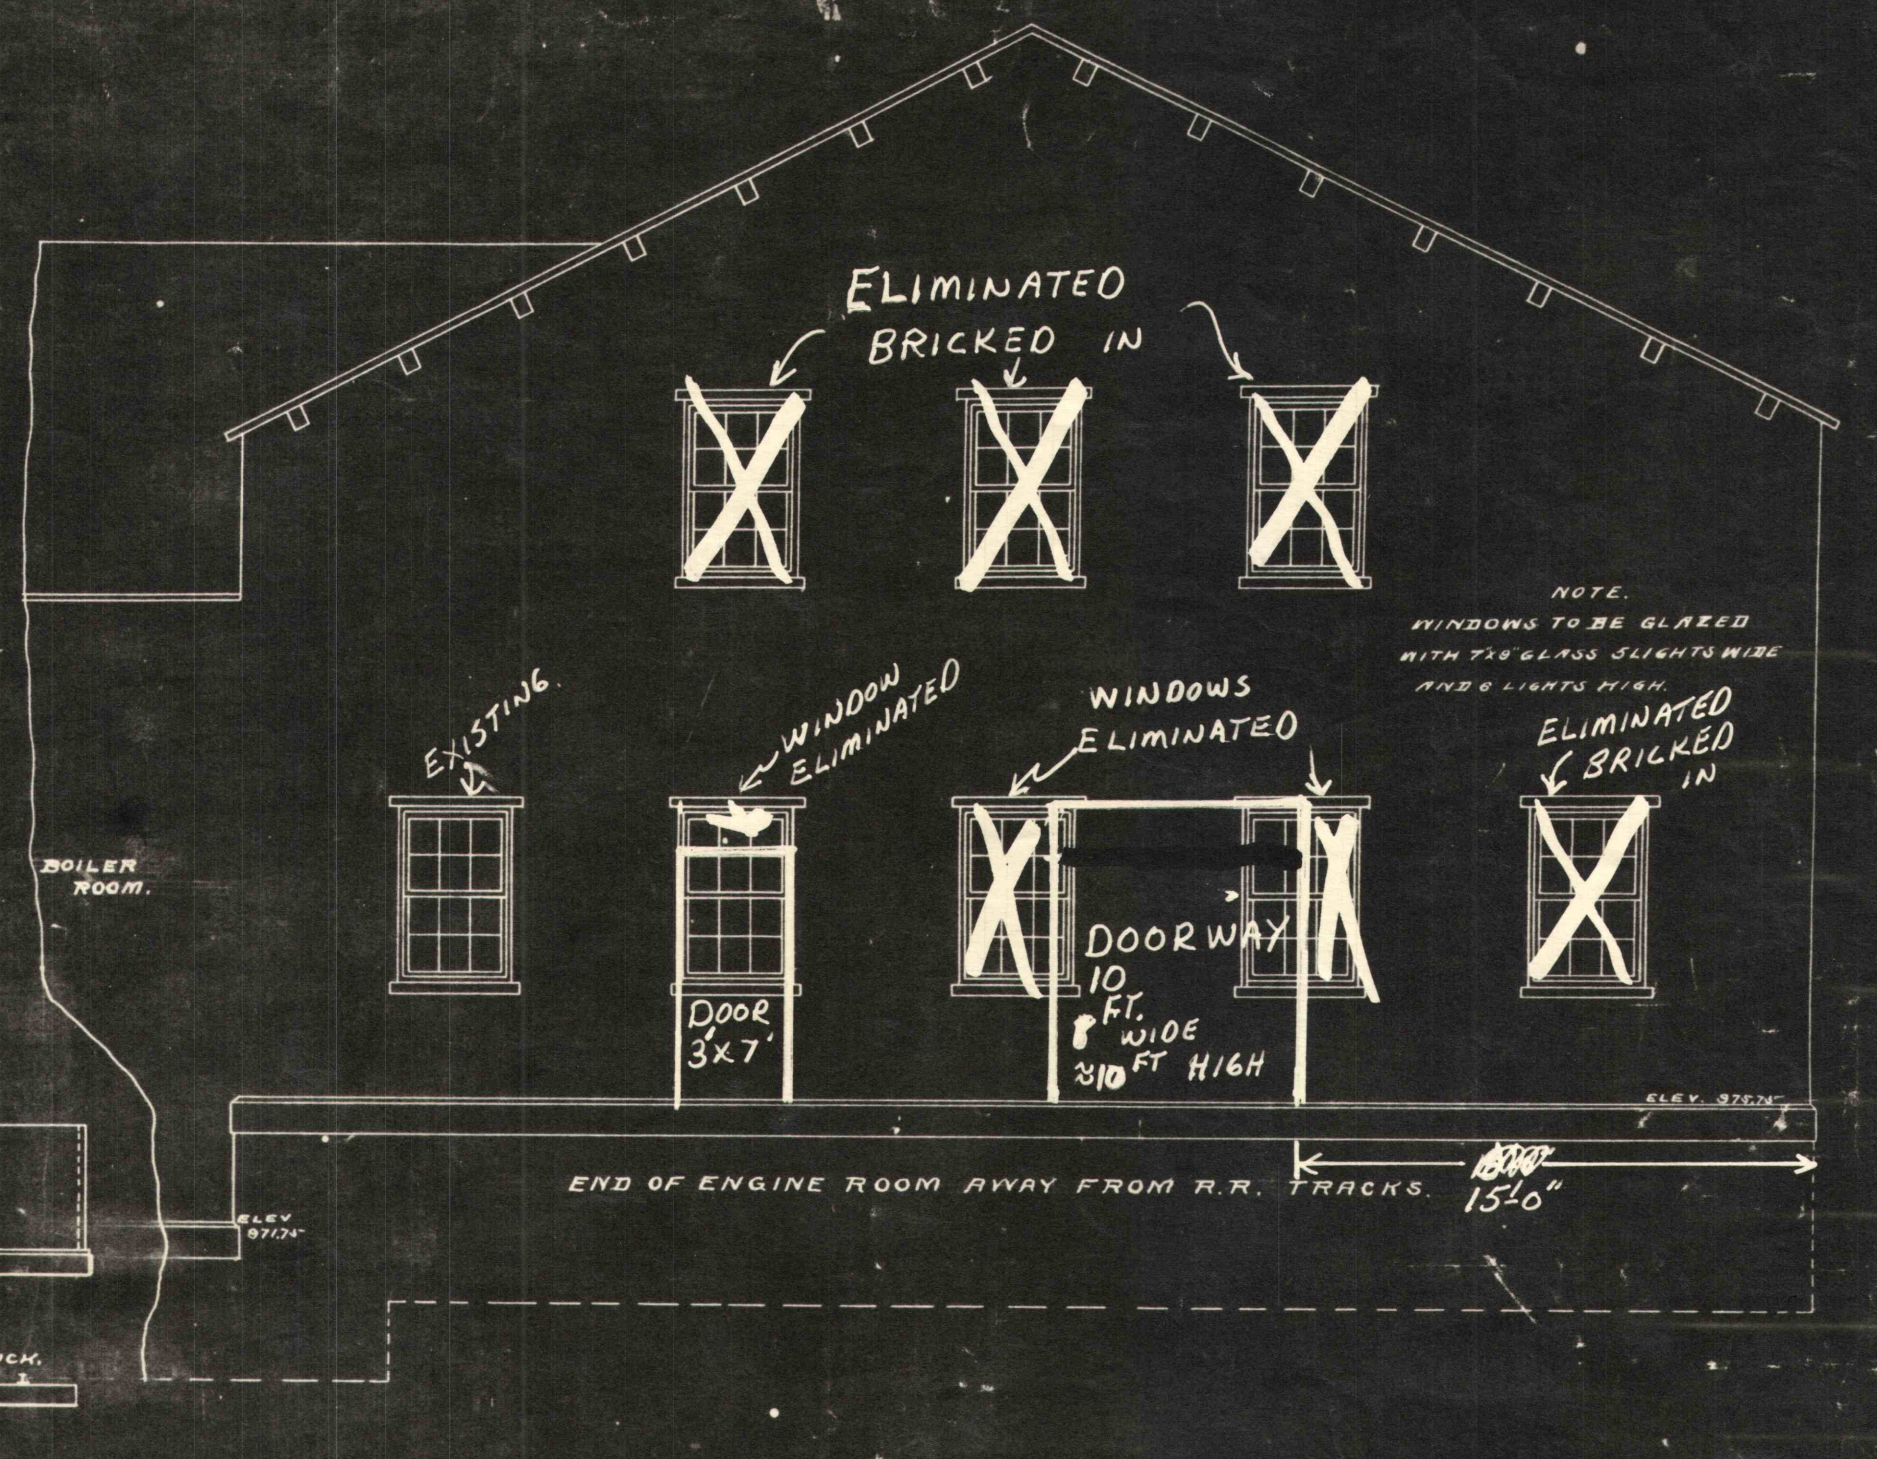 ELIMINATED
BRICKED IN
NOTE.
WINDOWS TO BE GLAZED
WITH 7"X9" GLASS 5 LIGHTS WIDE
AND 6 LIGHTS HIGH.
EXISTING.
WINDOW
ELIMINATED
WINDOWS
ELIMINATED
ELIMINATED
BRICKED
IN
BOILER
ROOM.
DOOR
3'X7'
DOORWAY
10
FT.
WIDE
≈10 FT HIGH
ELEV. 975.75
END OF ENGINE ROOM AWAY FROM R.R. TRACKS.
15'-0"
ELEV
971.75